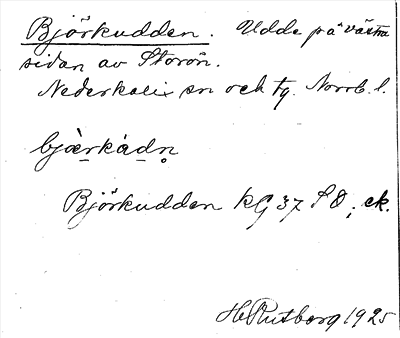 Björkudden. Udde på västra
sidan av Storön.
Nederkalix sn och tg. Norrb. l.
bjæ̀rkádn̥
Björkudden KG 37 SO; ek.
1925